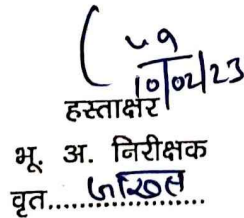 10/02/23
हस्ताक्षर
भू. अ. निरीक्षक
वृत.....................